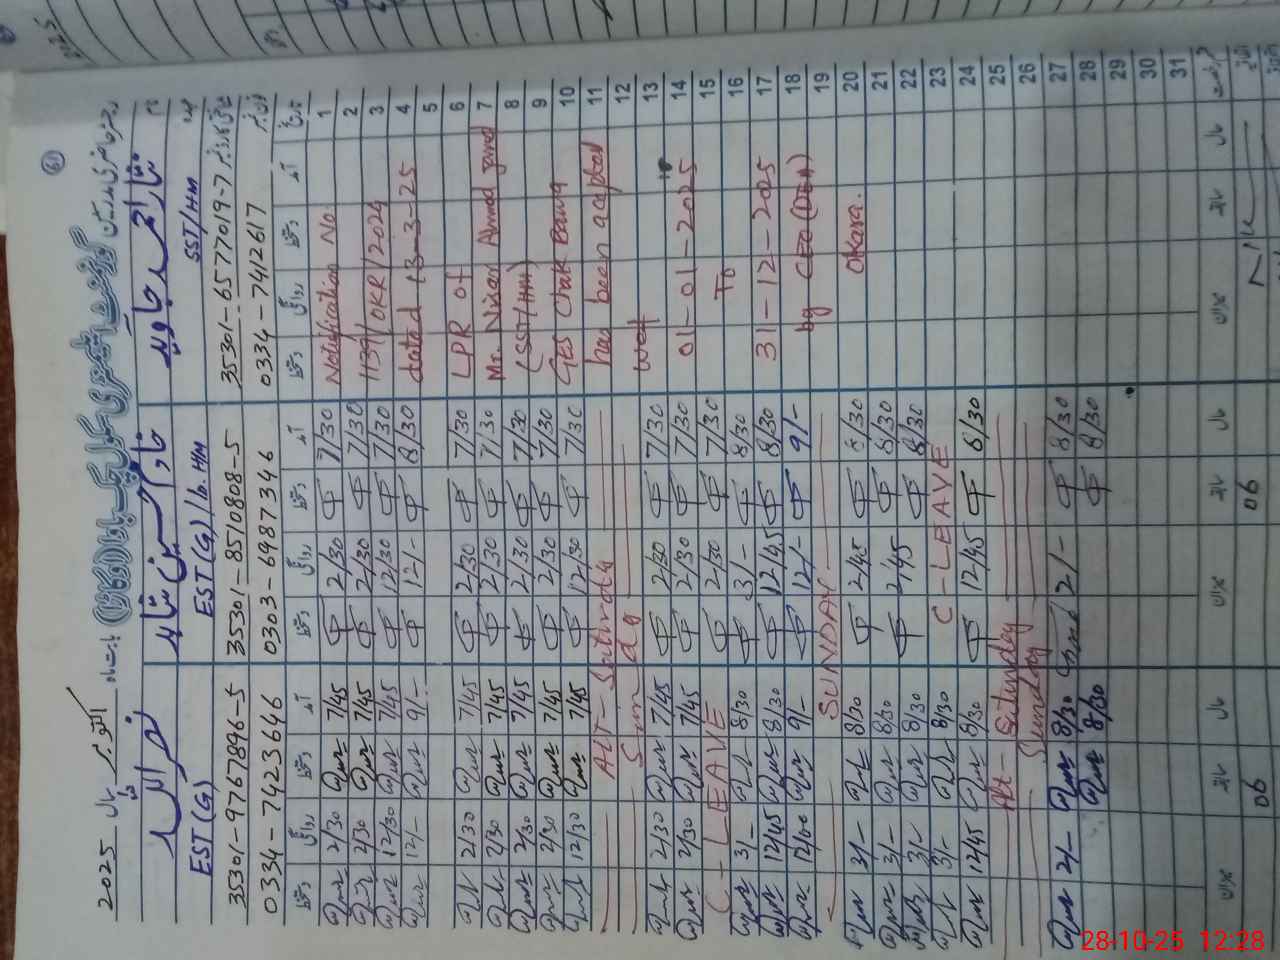 رجسٹر حاضری مدرسین گورنمنٹ ایلیمنٹری سکول چک باوا (اوکاڑہ) بابت ماہ اکتوبر سال 2025
61
نام نثار احمد جاوید خادم حسین شاہد نصر اللہ
عہدہ SST/HM EST(G)/Ic. HM EST(G)
35301-6577019-7 35301-8510808-5 35301-9767896-5
0334-7412617 0303-6987346 0334-7423646
تاریخ آمد دستخط روانگی دستخط آمد دستخط روانگی دستخط آمد دستخط روانگی دستخط
1 Notification No. 7/30 2/30 7/45 2/30
2 7/30 2/30 7/45 2/30
3 1139/OKR/2024 7/30 12/30 7/45 12/30
4 dated 13-3-25 8/30 12/- 9/- 12/-
5
6 LPR of 7/30 2/30 7/45 2/30
7 Mr. Nisar Ahmad 7/30 2/30 7/45 2/30
8 (SST/HM) 7/30 2/30 7/45 2/30
9 GES Chak Bawa 7/30 2/30 7/45 2/30
10 7/30 12/30 7/45 12/30
11 has been accepted ALT- Saturday
12 Sunday
13 wef 7/30 2/30 7/45 2/30
14 01-01-2025 7/30 2/30 7/45 2/30
15 To 7/30 2/30 C-LEAVE
16 8/30 3/- 8/30 3/-
17 31-12-2025 8/30 12/45 8/30 12/45
18 by CEO (DEA) 9/- 12/- 9/- 12/00
19 SUNDAY
20 Okara. 8/30 2/45 8/30 3/-
21 8/30 2/45 8/30 3/-
22 8/30 8/30 3/-
23 C-LEAVE 8/30 3/-
24 8/30 12/45 8/30 12/45
25 Alt- Saturday
26 Sunday
27 8/30 2/- 8/30 2/-
28 8/30 8/30
29
30
31
سال سابقہ میزان سال سابقہ میزان سال سابقہ میزان
06 06
28-10-25 12:28